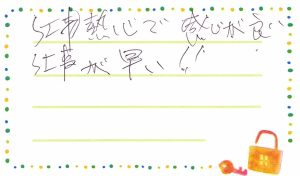 仕事熱心で 感じが良い
仕事が早い!!